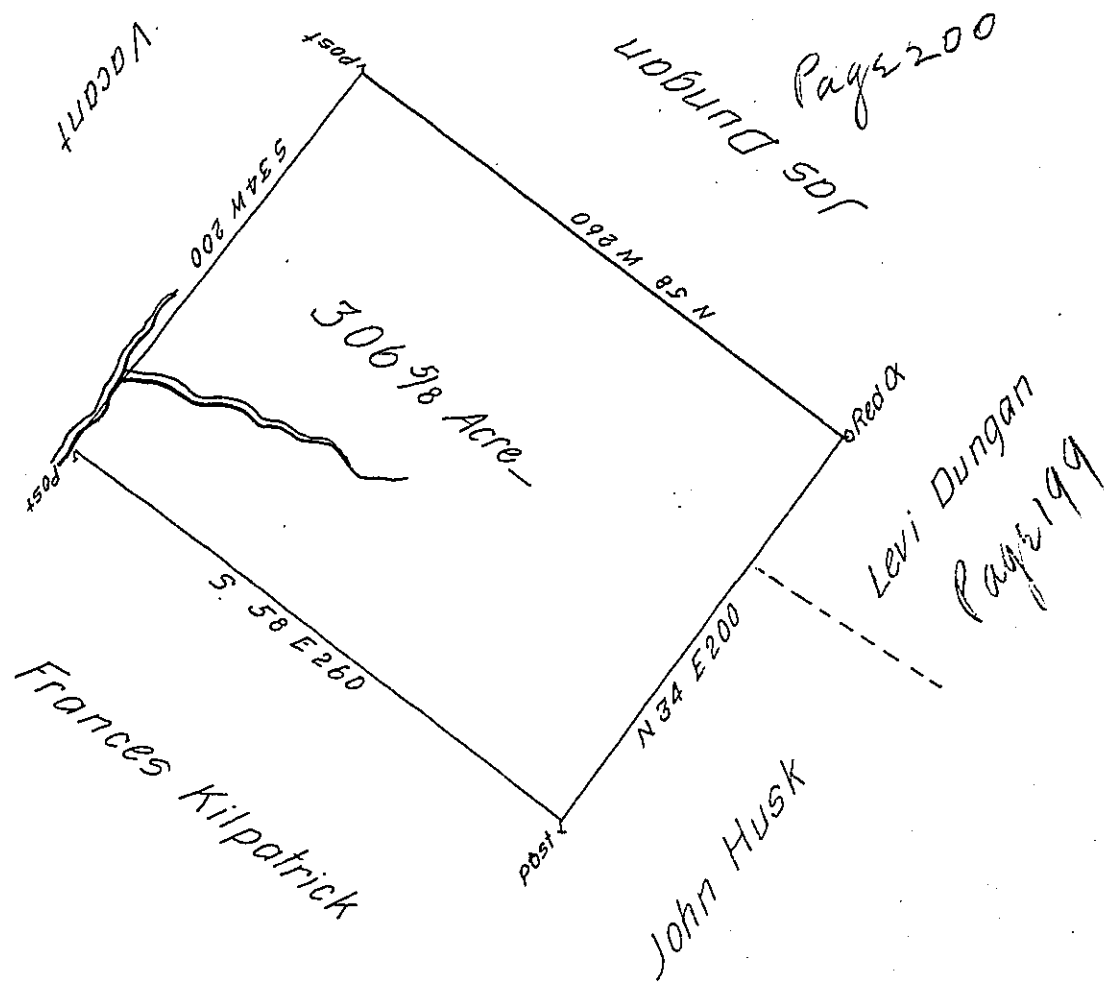 Vacant
Post
Jas Dungan
Page 200
S 34 W 200
N 58 W 260
306 5/8 Acre_
Red O
Levi Dungan
Page 199
Post
S. 58 E 260
N 34 E 200
Frances Kilpatrick
Post
John Husk